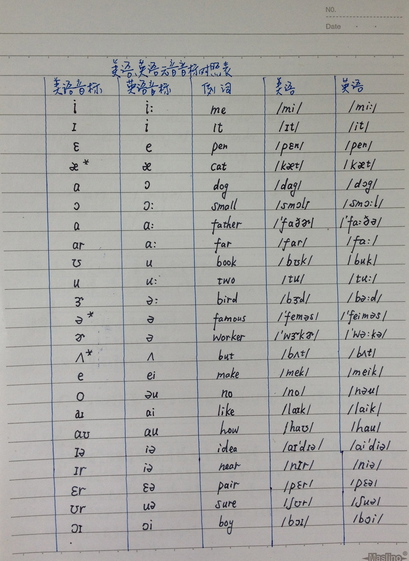 NO.
Date
美语、英语元音音标对照表
美语音标 英语音标 例词 美语 英语
i i: me /mi/ /mi:/
ɪ i it /ɪt/ /it/
ɛ e pen /pɛn/ /pen/
æ* æ cat /kæt/ /kæt/
ɑ ɔ dog /dɑg/ /dɔg/
ɔ ɔ: small /smɔl/ /smɔ:l/
ɑ ɑ: father /ˈfɑðɚ/ /ˈfɑ:ðə/
ɑr ɑ: far /fɑr/ /fɑ:/
ʊ u book /bʊk/ /buk/
u u: two /tu/ /tu:/
ɝ ə: bird /bɝd/ /bə:d/
ə* ə famous /ˈfeməs/ /ˈfeiməs/
ɚ ə worker /ˈwɝkɚ/ /ˈwə:kə/
ʌ* ʌ but /bʌt/ /bʌt/
e ei make /mek/ /meik/
o əu no /no/ /nəu/
aɪ ai like /laɪk/ /laik/
aʊ au how /haʊ/ /hau/
ɪə iə idea /aɪˈdɪə/ /aiˈdiə/
ɪr iə near /nɪr/ /niə/
ɛr ɛə pair /pɛr/ /pɛə/
ʊr uə sure /ʃʊr/ /ʃuə/
ɔɪ ɔi boy /bɔɪ/ /bɔi/